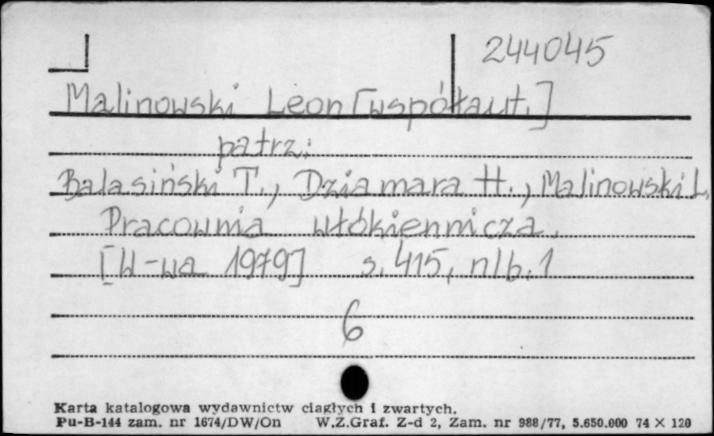 244045
Malinowski Leon [współaut.]
patrz:
Balasiński T., Dziamara H., Malinowski L.
Pracownia włókiennicza.
[W-wa 1979] s. 415, nlb. 1
6
Karta katalogowa wydawnictw ciągłych i zwartych.
Pu-B-144 zam. nr 1674/DW/On W.Z.Graf. Z-d 2, Zam. nr 988/77, 5.650.000 74 × 120